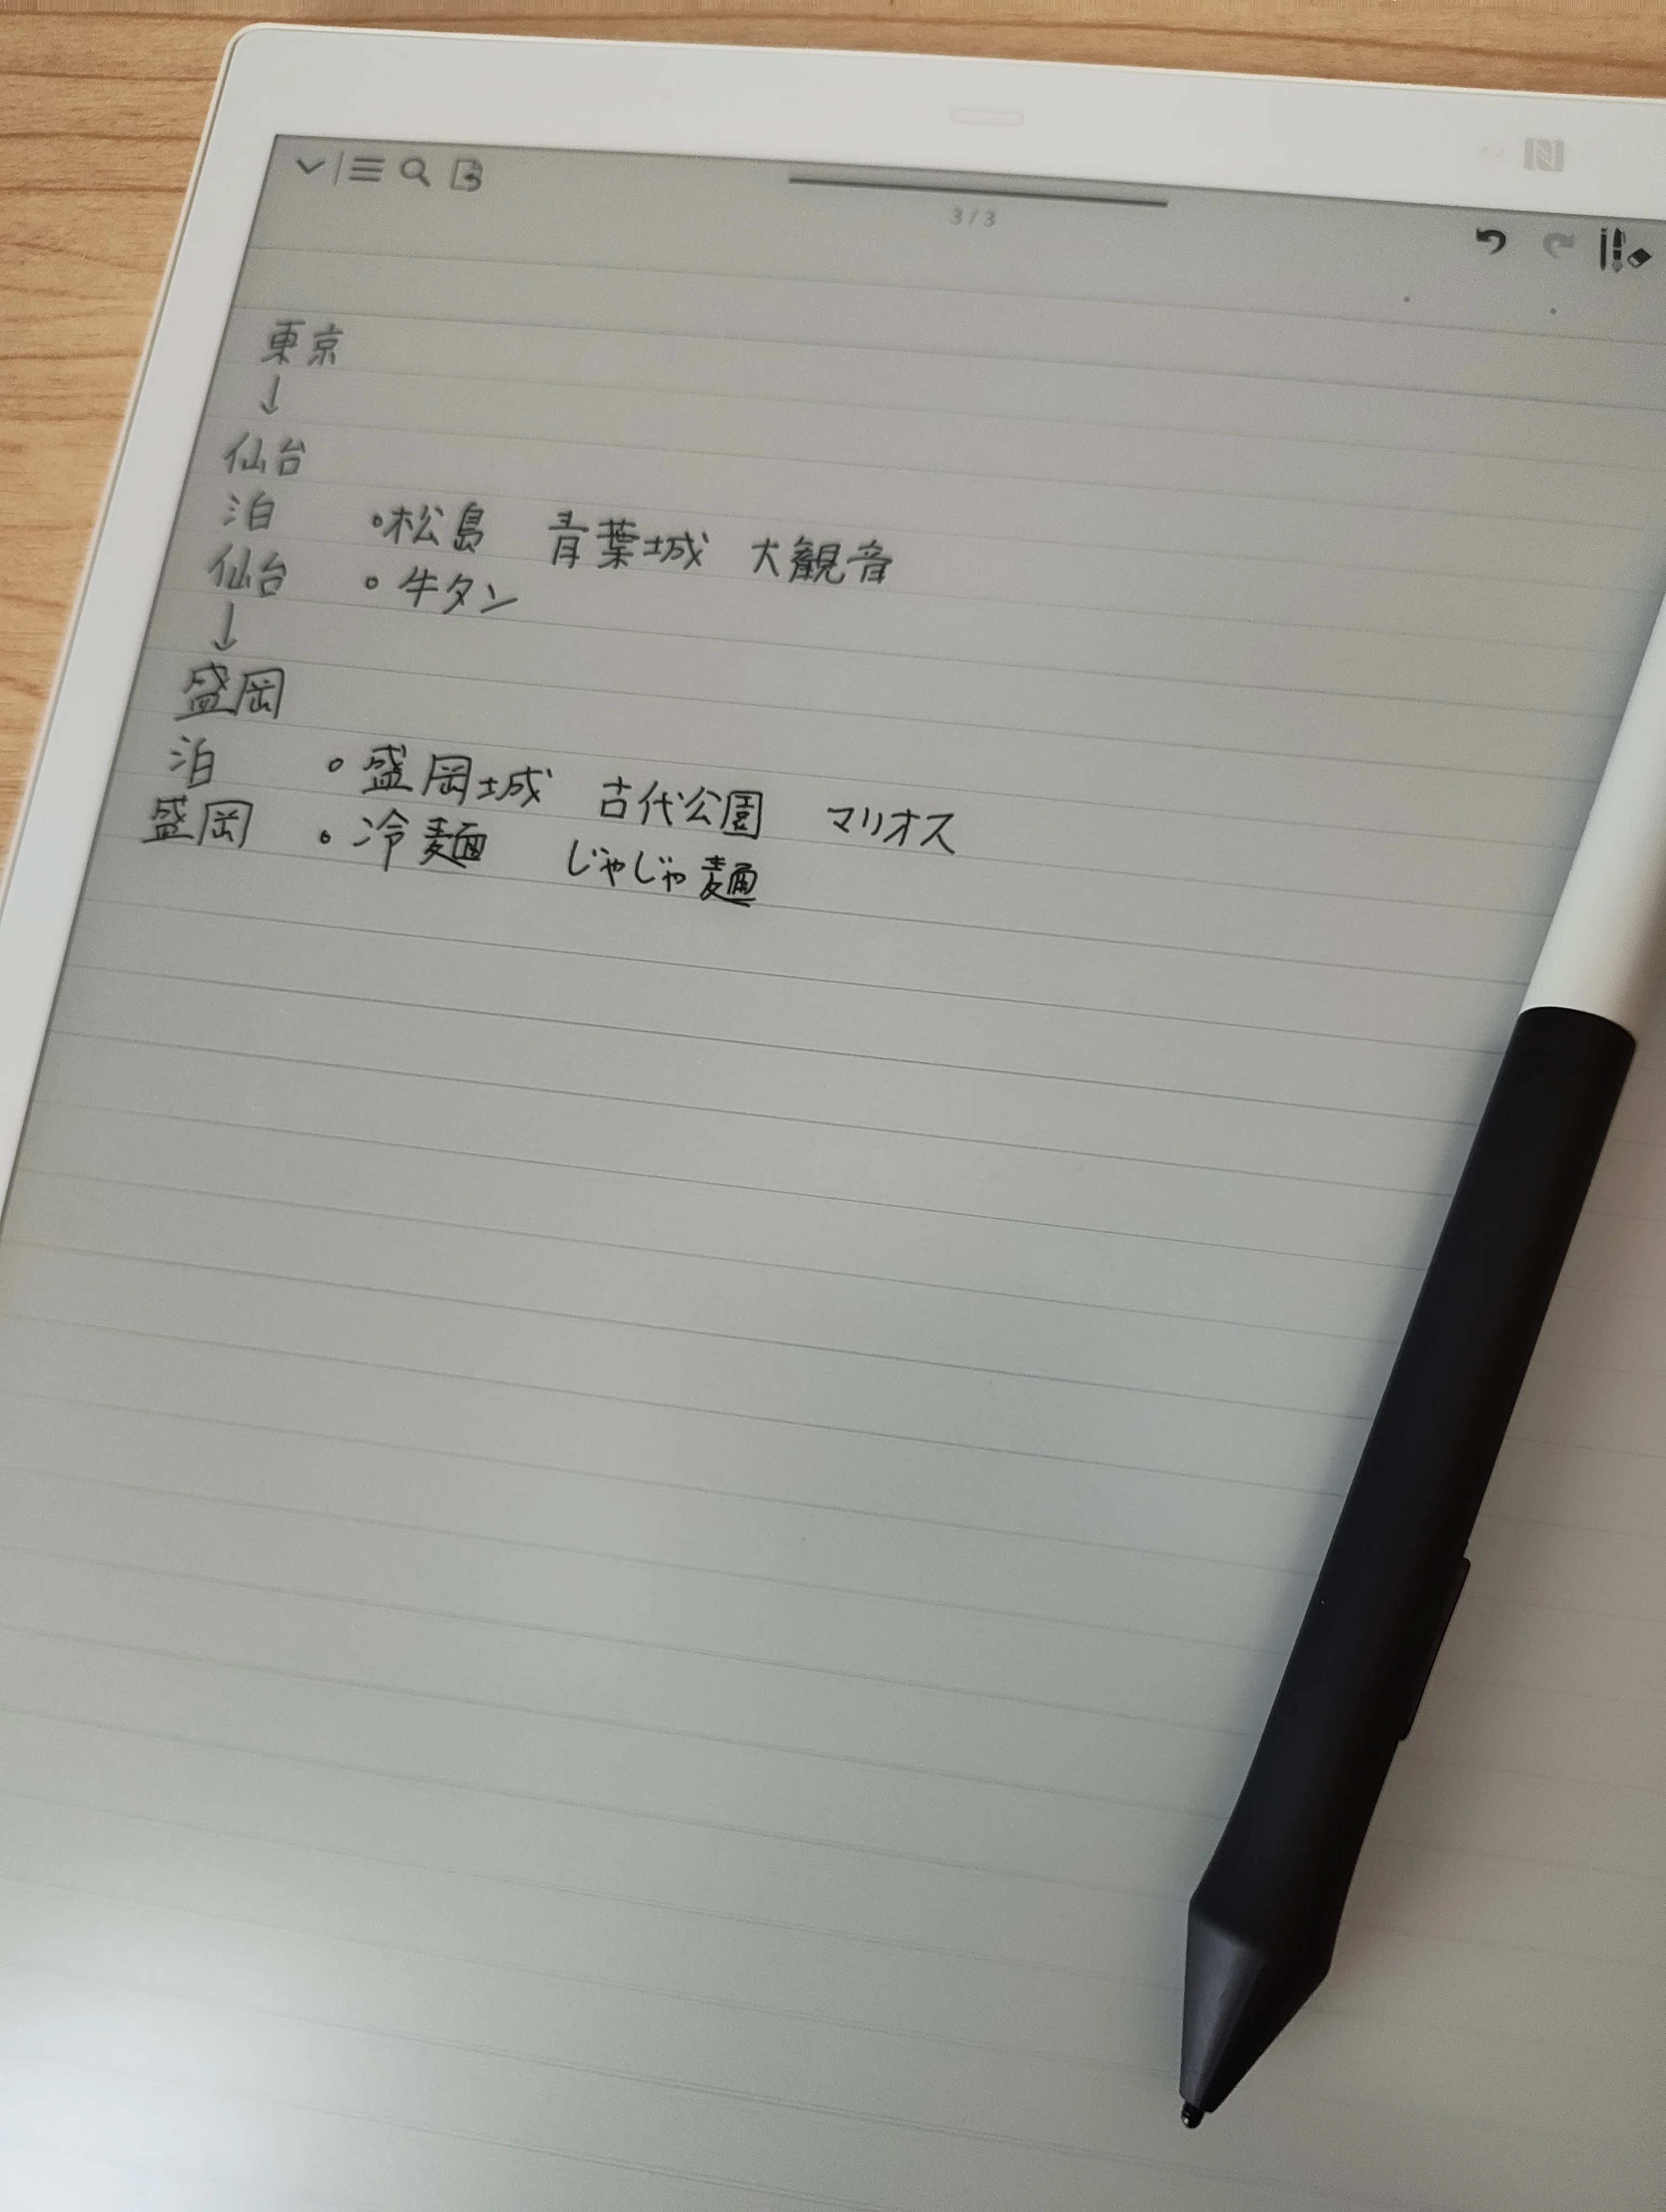 3/3
東京
↓
仙台
泊 •松島 青葉城 大観音
仙台 •牛タン
↓
盛岡
泊 •盛岡城 古代公園 マリオス
盛岡 •冷麺 じゃじゃ麺